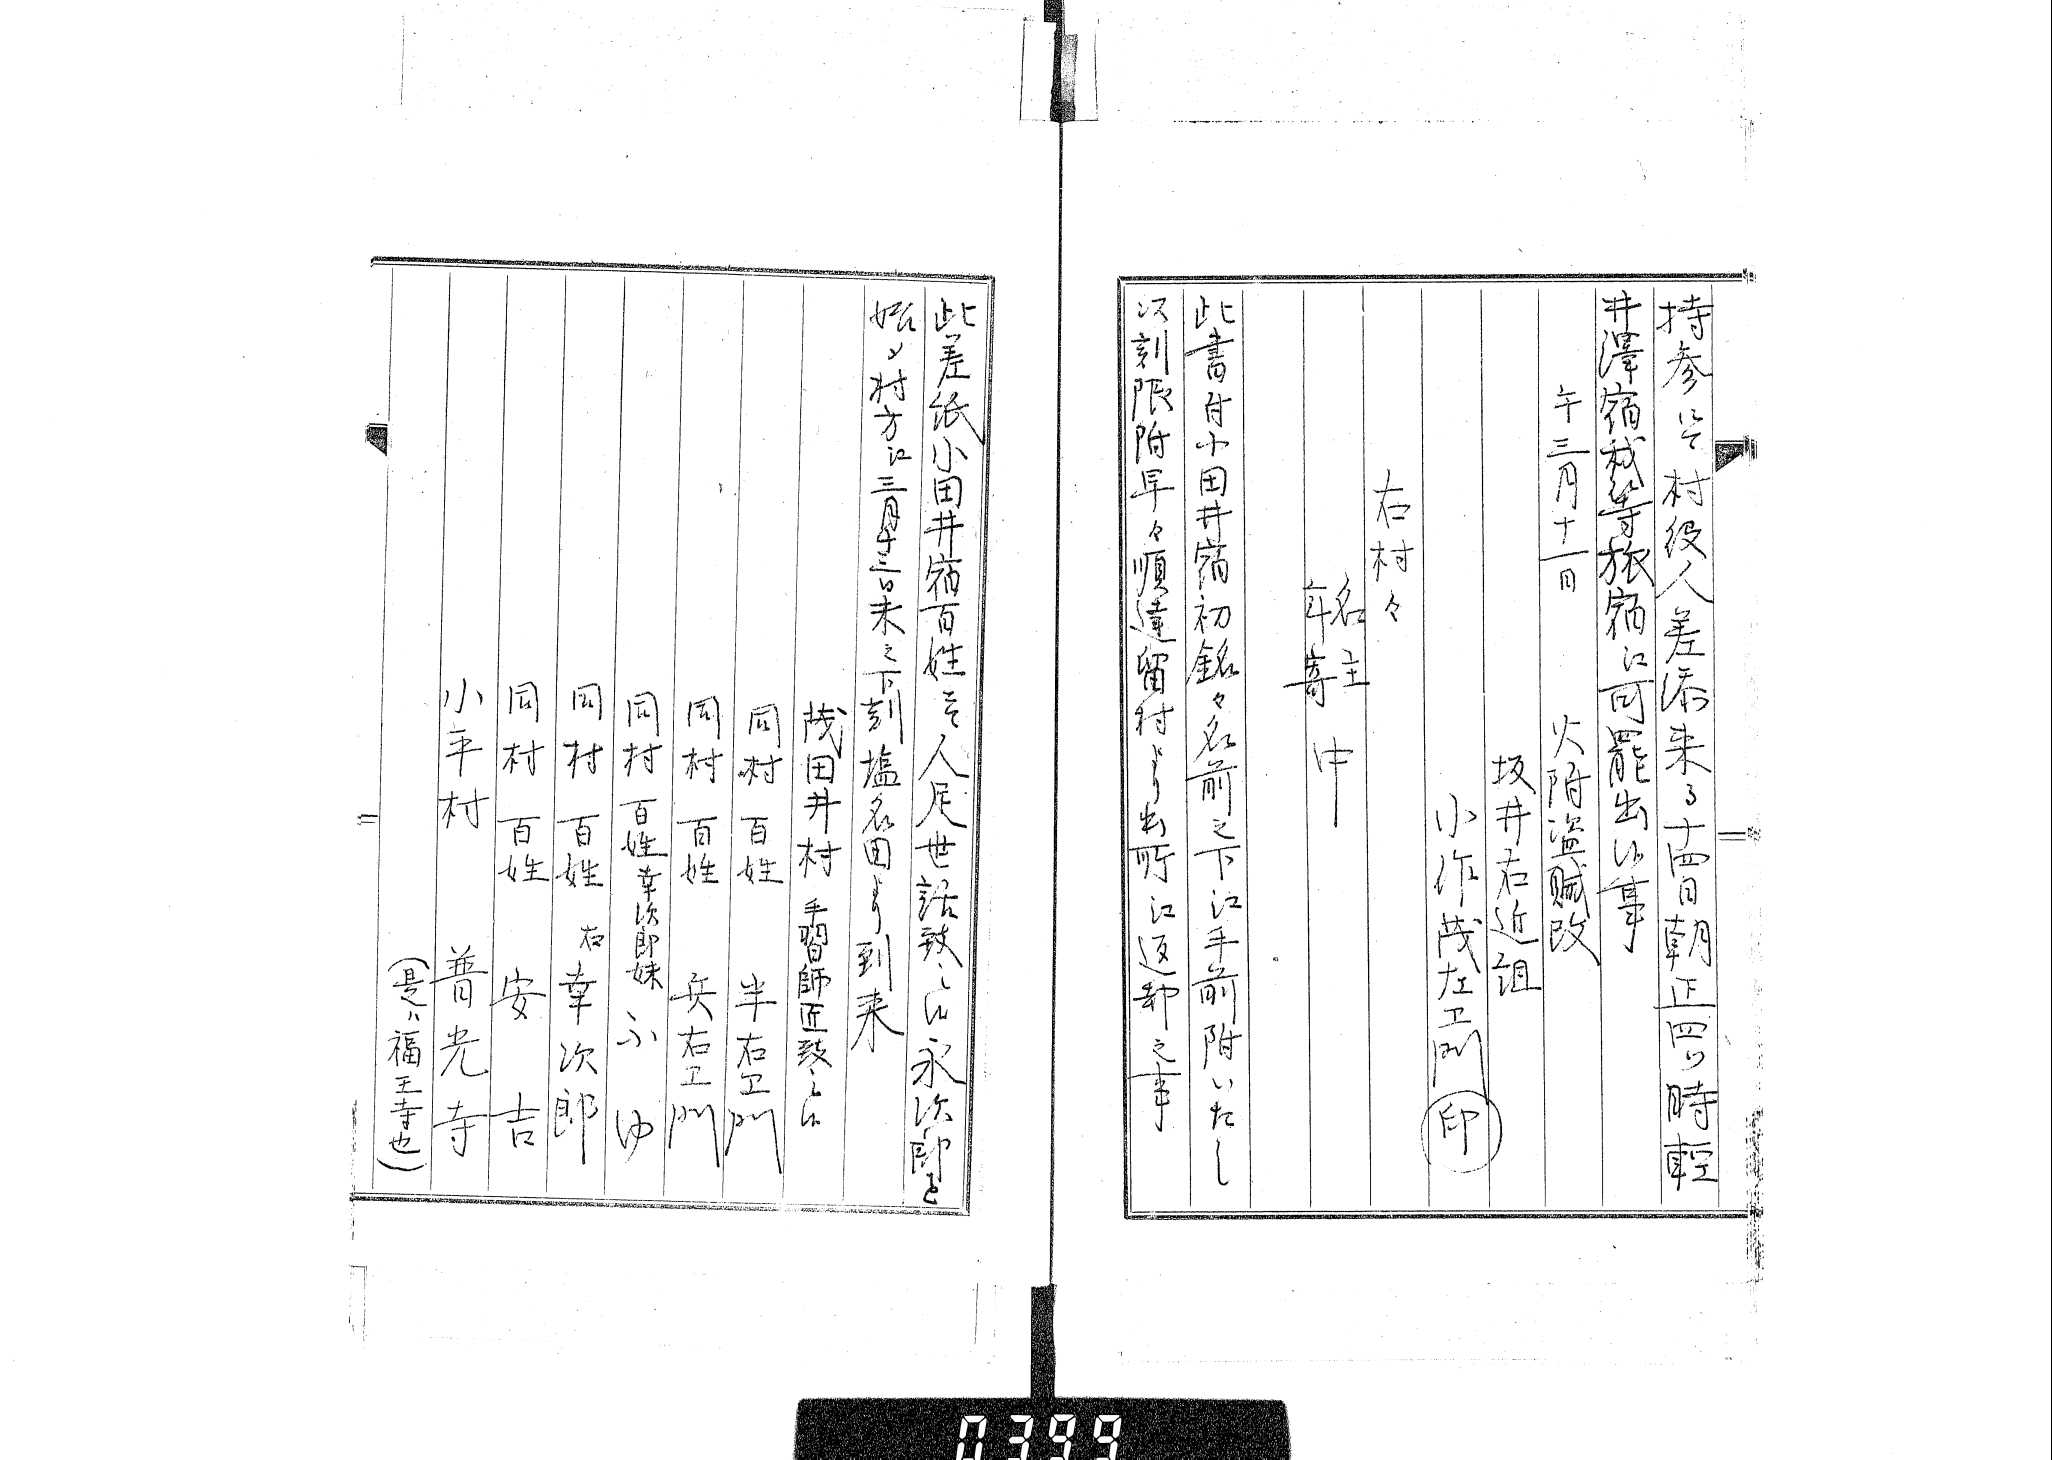 持参ニ而村役人差添来ル十四日朝正四ツ時軽
井澤宿我等旅宿江可罷出候事
午三月十一日　火附盗賊改
坂井右近組
小作茂左エ門 印
右村々
名主
年寄 中
此書付小田井宿初銘々名前之下江手前附いたし
次刻限附早々順達留村より出所江返却之事
此差紙小田井宿百姓ニ而人足世話致候永次郎を
始メ村方江三月十三日未之下刻塩名田より到来
茂田井村 手習師匠致候
同村 百姓 半右エ門
同村 百姓 兵右エ門
同村 百姓幸次郎妹 ふゆ
同村 百姓 右幸次郎
同村 百姓 安吉
小平村 普光寺
(是ハ福王寺也)
0399